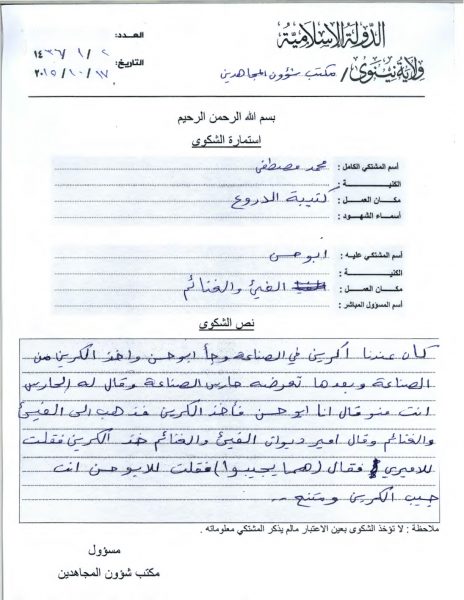 الدولة الإسلامية
ولاية نينوى / مكتب شؤون المجاهدين
العدد:
٢ / ١ / ١٤٣٦
التاريخ:
١٧ / ١٠ / ٢٠١٥
بسم الله الرحمن الرحيم
استمارة الشكوى
أسم المشتكي الكامل : محمد مصطفى
الكنية :
مكان العمل : كتيبة الدروع
أسماء الشهود :
أسم المشتكي عليه : ابو حسن
الكنية :
مكان العمل : الفيئ والغنائم
أسم المسؤول المباشر :
نص الشكوى
كان عندنا اكرين في الصناعة وجأ ابو حسن واخذ الكرين من
الصناعة وبعدها تعرضه حارس الصناعة وقال له الحارس
انت منو قال انا ابو حسن فأخذ الكرين فذهب الى الفيئ
والغنائم وقال امير ديوان الفيئ والغنائم خذ الكرين فقلت
للاميري فقال (هما يجيبوا) فقلت للابو حسن انت
جيب الكرين ومتنع --
ملاحظة : لا تؤخذ الشكوى بعين الاعتبار مالم يذكر المشتكي معلوماته .
مسؤول
مكتب شؤون المجاهدين